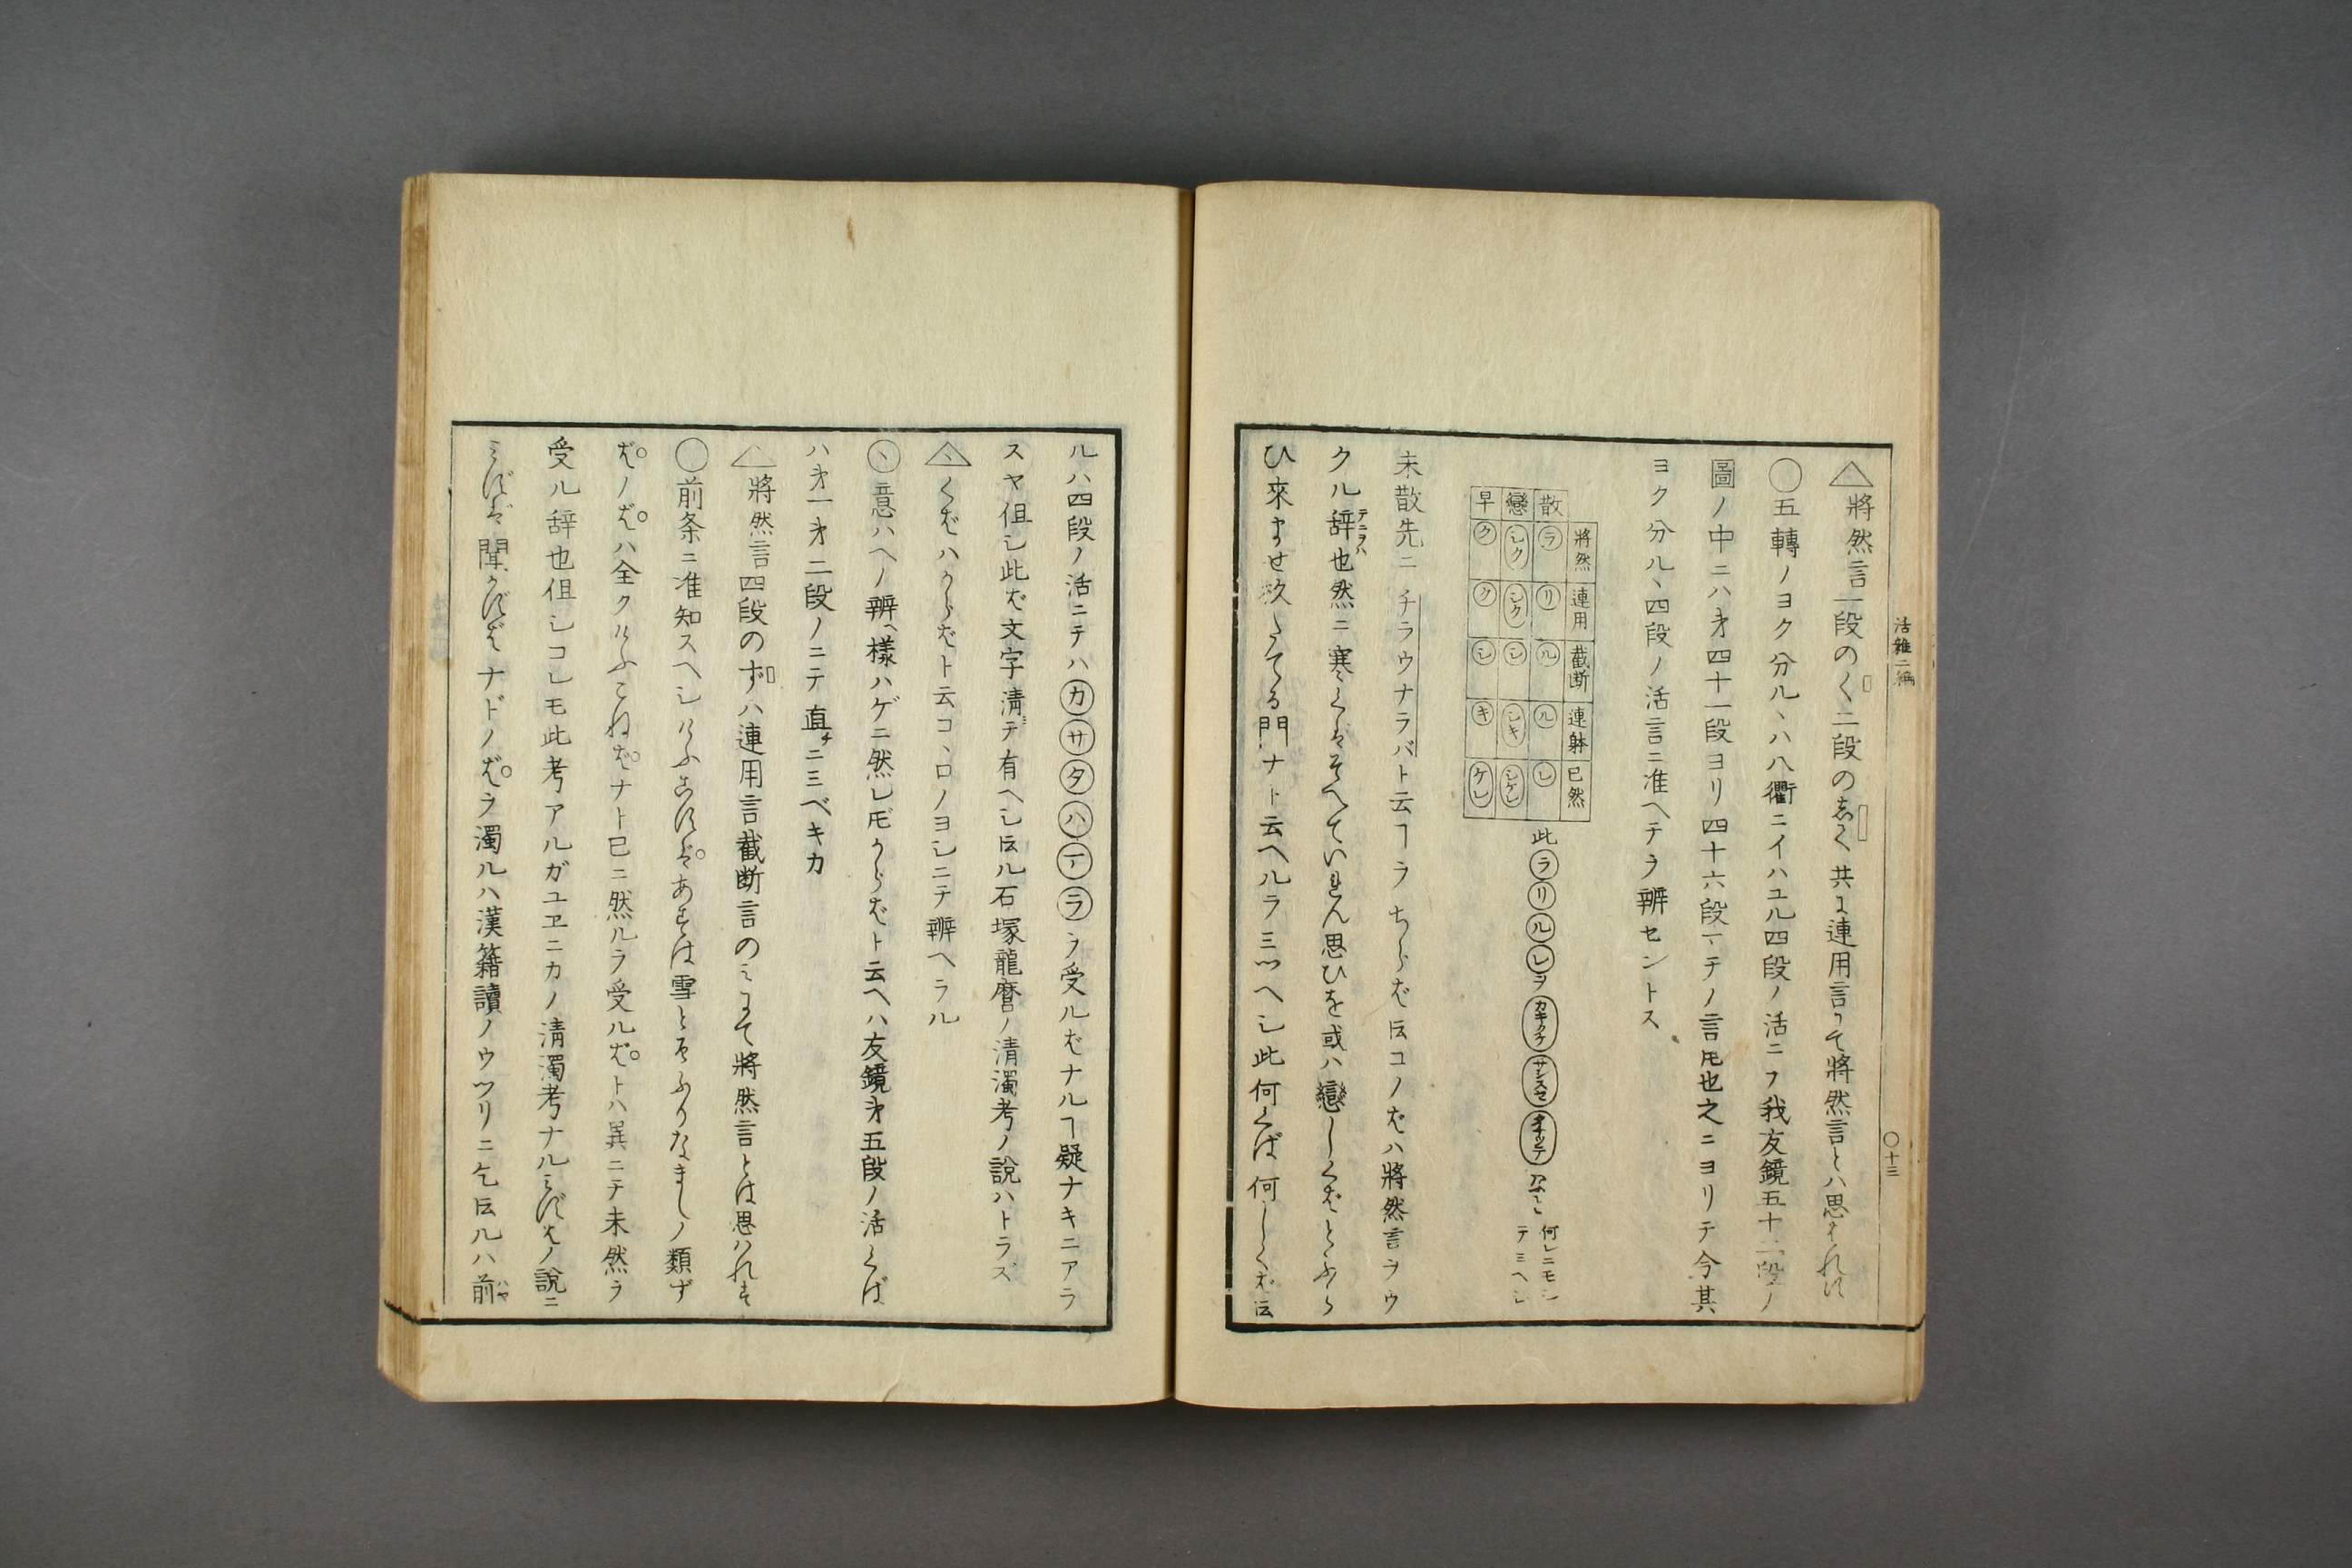 活雜二編
〇十三
△將然言一段のく二段の志く共に連用言にて將然言とハ思はれ
〇五轉ノヨク分ル丶ハ八衢ニイハユル四段ノ活ニテ我友鏡五十二段ノ
圖ノ中ニハ才四十一段ヨリ四十六段マテノ言𪜈也之ニヨリテ今其
ヨク分ル丶四段ノ活言ニ准ヘテヲ辨セントス
將然 連用 截断 連躰 已然
散 ラ リ ル ル レ
戀 シク シク シ シキ シケレ
早 ク ク シ キ ケレ
此ラリルレヲカキクケサシスセタチツテなと
何レニモシテミヘシ
未散先ニチラウナラバト云ヿヲちらバ𪜈コノバハ將然言ヲウ
クル辞也然ニ寒くバそへていれん思ひを或ハ戀しくバとふら
テニヲハ
ひ來ませ玖たてる門ナト云ヘルヲ三ツヘシ此何くば何しくバ云
ルハ四段ノ活ニテハカサタハマラヲ受ルバナルヿ疑ナキニアラ
スヤ但し此バ文字清テ有ヘシ云ル石塚龍麿ノ清濁考ノ說ハトラズ
△くバハからバト云コ丶ロノヨシニテ辨ヘラル
〇意ハヘノ辨ヘ樣ハゲニ然レ𪜈からバト云ヘハ友鏡才五段ノ活くば
ハ才一才二段ノニテ直チニミベキカ
△將然言四段のずハ連用言截断言のミにて將然言とは思ハれず
〇前条ニ准知スヘシけふこずバあすは雪とぞふりなましノ類ず
バノバハ全クけふこねバナト已ニ然ルヲ受ルバトハ異ニテ未然ヲ
受ル辞也但シコレモ此考アルガユヱニカノ清濁考ナルみずバノ說ニ
みずバ聞かずバナドノバヲ濁ルハ漢籍讀ノウツリニて云ルハ前
ハヤ